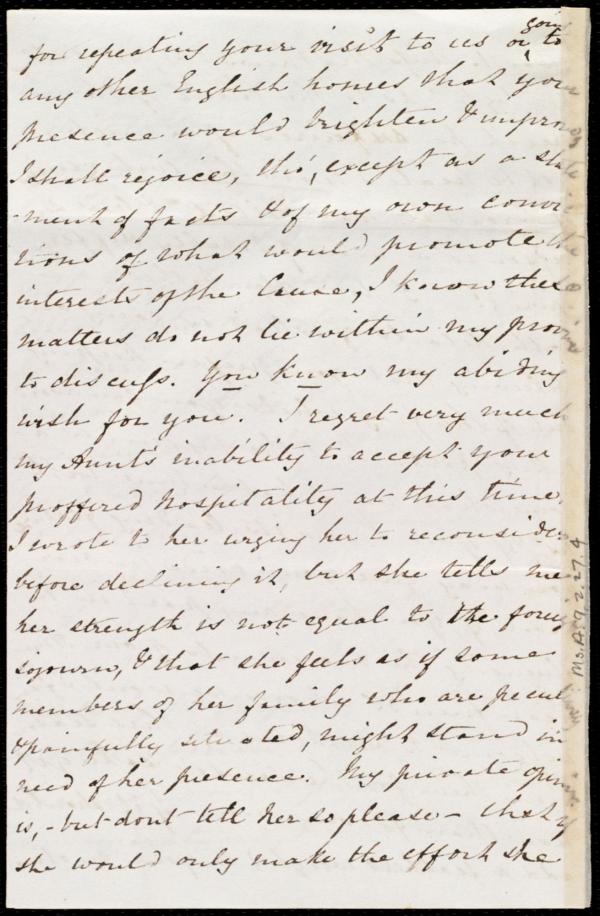 for repeating your visit to us or going to
any other English homes that your
presence would brighten & improve
I shall rejoice, tho', except as a state
-ment of facts & of my own convic
tions of what would promote the
interests of the Cause, I know these
matters do not lie within my province
to discuss. You know my abiding
wish for you. I regret very much
my Aunt's inability to accept your
proffered hospitality at this time.
I wrote to her urging her to reconsider
before declining it, but she tells me
her strength is not equal to the
sojourn, & that she feels as if some
members of her family who are peculiarly
& painfully situated, might stand in
need of her presence. My private opinion
is, - but dont tell her so please - that if
she would only make the effort she
Ms.A.9.2.27.4